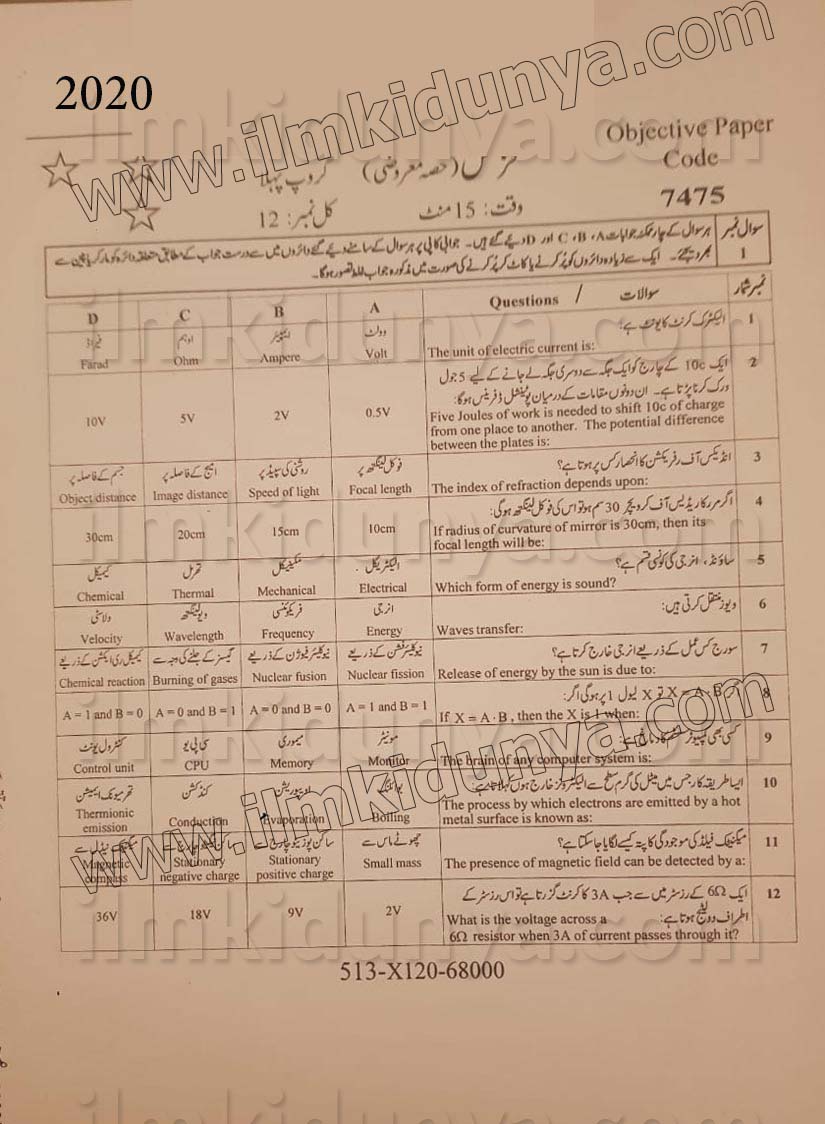 2020
www.ilmkidunya.com
Objective Paper
Code
7475
(حصہ معروضی) گروپ پہلا
وقت: 15 منٹ
کل نمبر: 12
سوال نمبر 1
ہر سوال کے چار ممکنہ جوابات A، B، C اور D دیے گئے ہیں۔ جوابی کاپی پر ہر سوال کے سامنے دیے گئے دائروں میں سے درست جواب کے مطابق متعلقہ دائرہ کو مارکر یا پین سے
بھر دیجئے۔ ایک سے زیادہ دائروں کو پُر کرنے یا کاٹ کر پُر کرنے کی صورت میں مذکورہ جواب غلط تصور ہوگا۔
نمبر شمار سوالات / Questions A B C D
1 الیکٹرک کرنٹ کا یونٹ ہے:
The unit of electric current is:
وولٹ ایمپیئر اوہم فیراڈ
Volt Ampere Ohm Farad
2 ایک 10c کے چارج کو ایک جگہ سے دوسری جگہ لے جانے کے لیے 5 جول
ورک کرنا پڑتا ہے۔ ان دونوں مقامات کے درمیان پوٹینشل ڈفرینس ہوگا:
Five Joules of work is needed to shift 10c of charge
from one place to another. The potential difference
between the plates is:
0.5V 2V 5V 10V
3 انڈیکس آف رفریکشن کا انحصار کس پر ہوتا ہے؟
The index of refraction depends upon:
فوکل لینگتھ پر روشنی کی سپیڈ پر امیج کے فاصلہ پر جسم کے فاصلہ پر
Focal length Speed of light Image distance Object distance
4 اگر مرر کا ریڈیس آف کرویچر 30 سم ہو تو اس کی فوکل لینگتھ ہوگی:
If radius of curvature of mirror is 30cm, then its
focal length will be:
10cm 15cm 20cm 30cm
5 ساؤنڈ، انرجی کی کونسی قسم ہے؟
Which form of energy is sound?
الیکٹریکل مکینیکل تھرمل کیمیکل
Electrical Mechanical Thermal Chemical
6 ویوز منتقل کرتی ہیں:
Waves transfer:
انرجی فریکوئنسی ویولینگتھ ولاسٹی
Energy Frequency Wavelength Velocity
7 سورج کس عمل کے ذریعے انرجی خارج کرتا ہے؟
Release of energy by the sun is due to:
نیوکلیئر فشن کے ذریعے نیوکلیئر فیوژن کے ذریعے گیسز کے جلنے کی وجہ سے کیمیکل ری ایکشن کے ذریعے
Nuclear fission Nuclear fusion Burning of gases Chemical reaction
8 اگر X = A·B تو X لیول 1 پر ہوگی اگر:
If X = A·B, then the X is 1 when:
A = 1 and B = 1 A = 0 and B = 0 A = 0 and B = 1 A = 1 and B = 0
9 کسی بھی کمپیوٹر سسٹم کا دماغ ہے:
The brain of any computer system is:
مونیٹر میموری سی پی یو کنٹرول یونٹ
Monitor Memory CPU Control unit
10 ایسا طریقہ کار جس میں میٹل کی گرم سطح سے الیکٹرونز خارج ہوں کہلاتا ہے:
The process by which electrons are emitted by a hot
metal surface is known as:
بوائلنگ ایوپوریشن کنڈکشن تھرمیونک ایمیشن
Boiling Evaporation Conduction Thermionic
emission
11 میگنیٹک فیلڈ کی موجودگی کا پتہ کیسے لگایا جا سکتا ہے؟
The presence of magnetic field can be detected by a:
چھوٹے ماس سے ساکن پوزیٹو چارج سے
Small mass Stationary
positive charge Stationary
negative charge Magnetic
compass
12 ایک 6Ω کے رزسٹر میں سے جب 3A کا کرنٹ گزرتا ہے تو اس رزسٹر کے
اطراف وولٹیج ہوتا ہے:
What is the voltage across a
6Ω resistor when 3A of current passes through it?
2V 9V 18V 36V
513-X120-68000
www.ilmkidunya.com
ilmkidunya.com